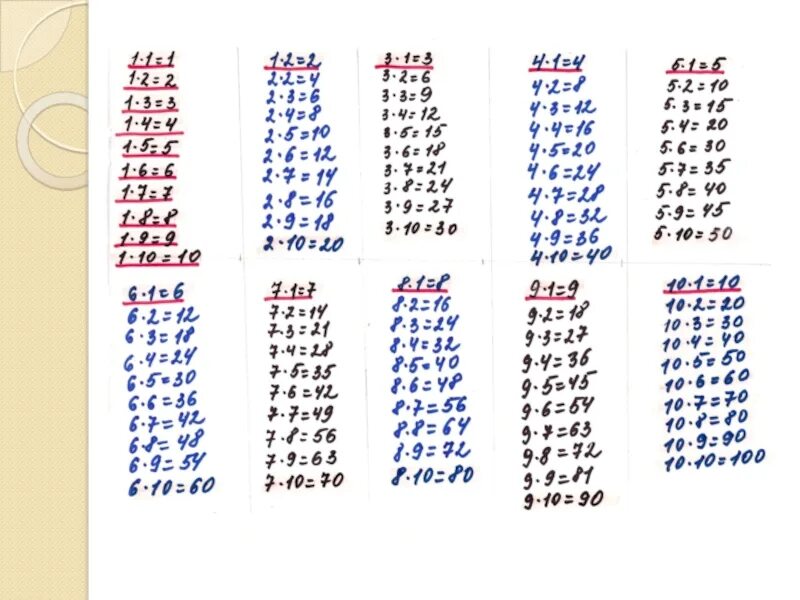 1·1=1
1·2=2
1·3=3
1·4=4
1·5=5
1·6=6
1·7=7
1·8=8
1·9=9
1·10=10
1·2=2
2·2=4
2·3=6
2·4=8
2·5=10
2·6=12
2·7=14
2·8=16
2·9=18
2·10=20
3·1=3
3·2=6
3·3=9
3·4=12
3·5=15
3·6=18
3·7=21
3·8=24
3·9=27
3·10=30
4·1=4
4·2=8
4·3=12
4·4=16
4·5=20
4·6=24
4·7=28
4·8=32
4·9=36
4·10=40
5·1=5
5·2=10
5·3=15
5·4=20
5·6=30
5·7=35
5·8=40
5·9=45
5·10=50
6·1=6
6·2=12
6·3=18
6·4=24
6·5=30
6·6=36
6·7=42
6·8=48
6·9=54
6·10=60
7·1=7
7·2=14
7·3=21
7·4=28
7·5=35
7·6=42
7·7=49
7·8=56
7·9=63
7·10=70
8·1=8
8·2=16
8·3=24
8·4=32
8·5=40
8·6=48
8·7=56
8·8=64
8·9=72
8·10=80
9·1=9
9·2=18
9·3=27
9·4=36
9·5=45
9·6=54
9·7=63
9·8=72
9·9=81
9·10=90
10·1=10
10·2=20
10·3=30
10·4=40
10·5=50
10·6=60
10·7=70
10·8=80
10·9=90
10·10=100